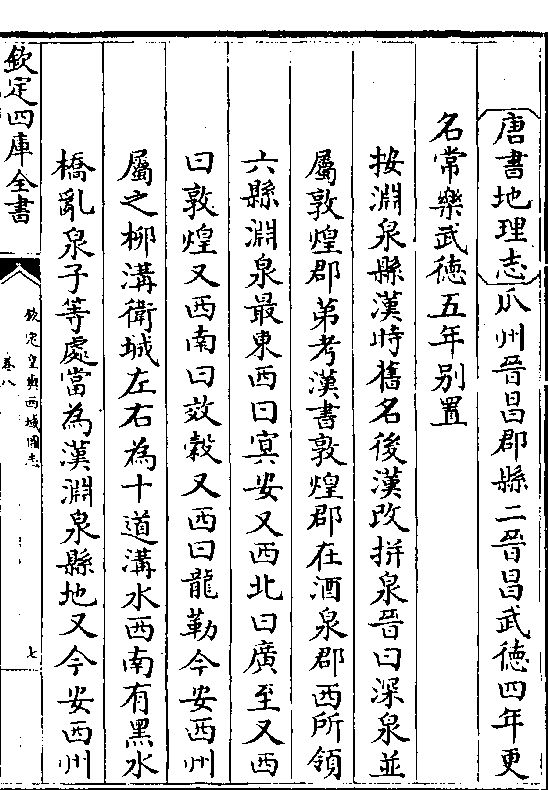 唐書地理志瓜州晉昌郡縣二晉昌武徳四年更
名常樂武徳五年别置
按淵泉縣漢時舊名後漢改拼泉晉曰深泉並
屬敦煌郡第考漢書敦煌郡在酒泉郡西所領
六縣淵泉最東西曰㝠安又西北曰廣至又西
曰敦煌又西南曰效穀又西曰龍勒今安西州
屬之柳溝衛城左右為十道溝水西南有黑水
橋亂泉子等處當為漢淵泉縣地又今安西州
欽定四庫全書
欽定皇輿西域圖志
卷八
七